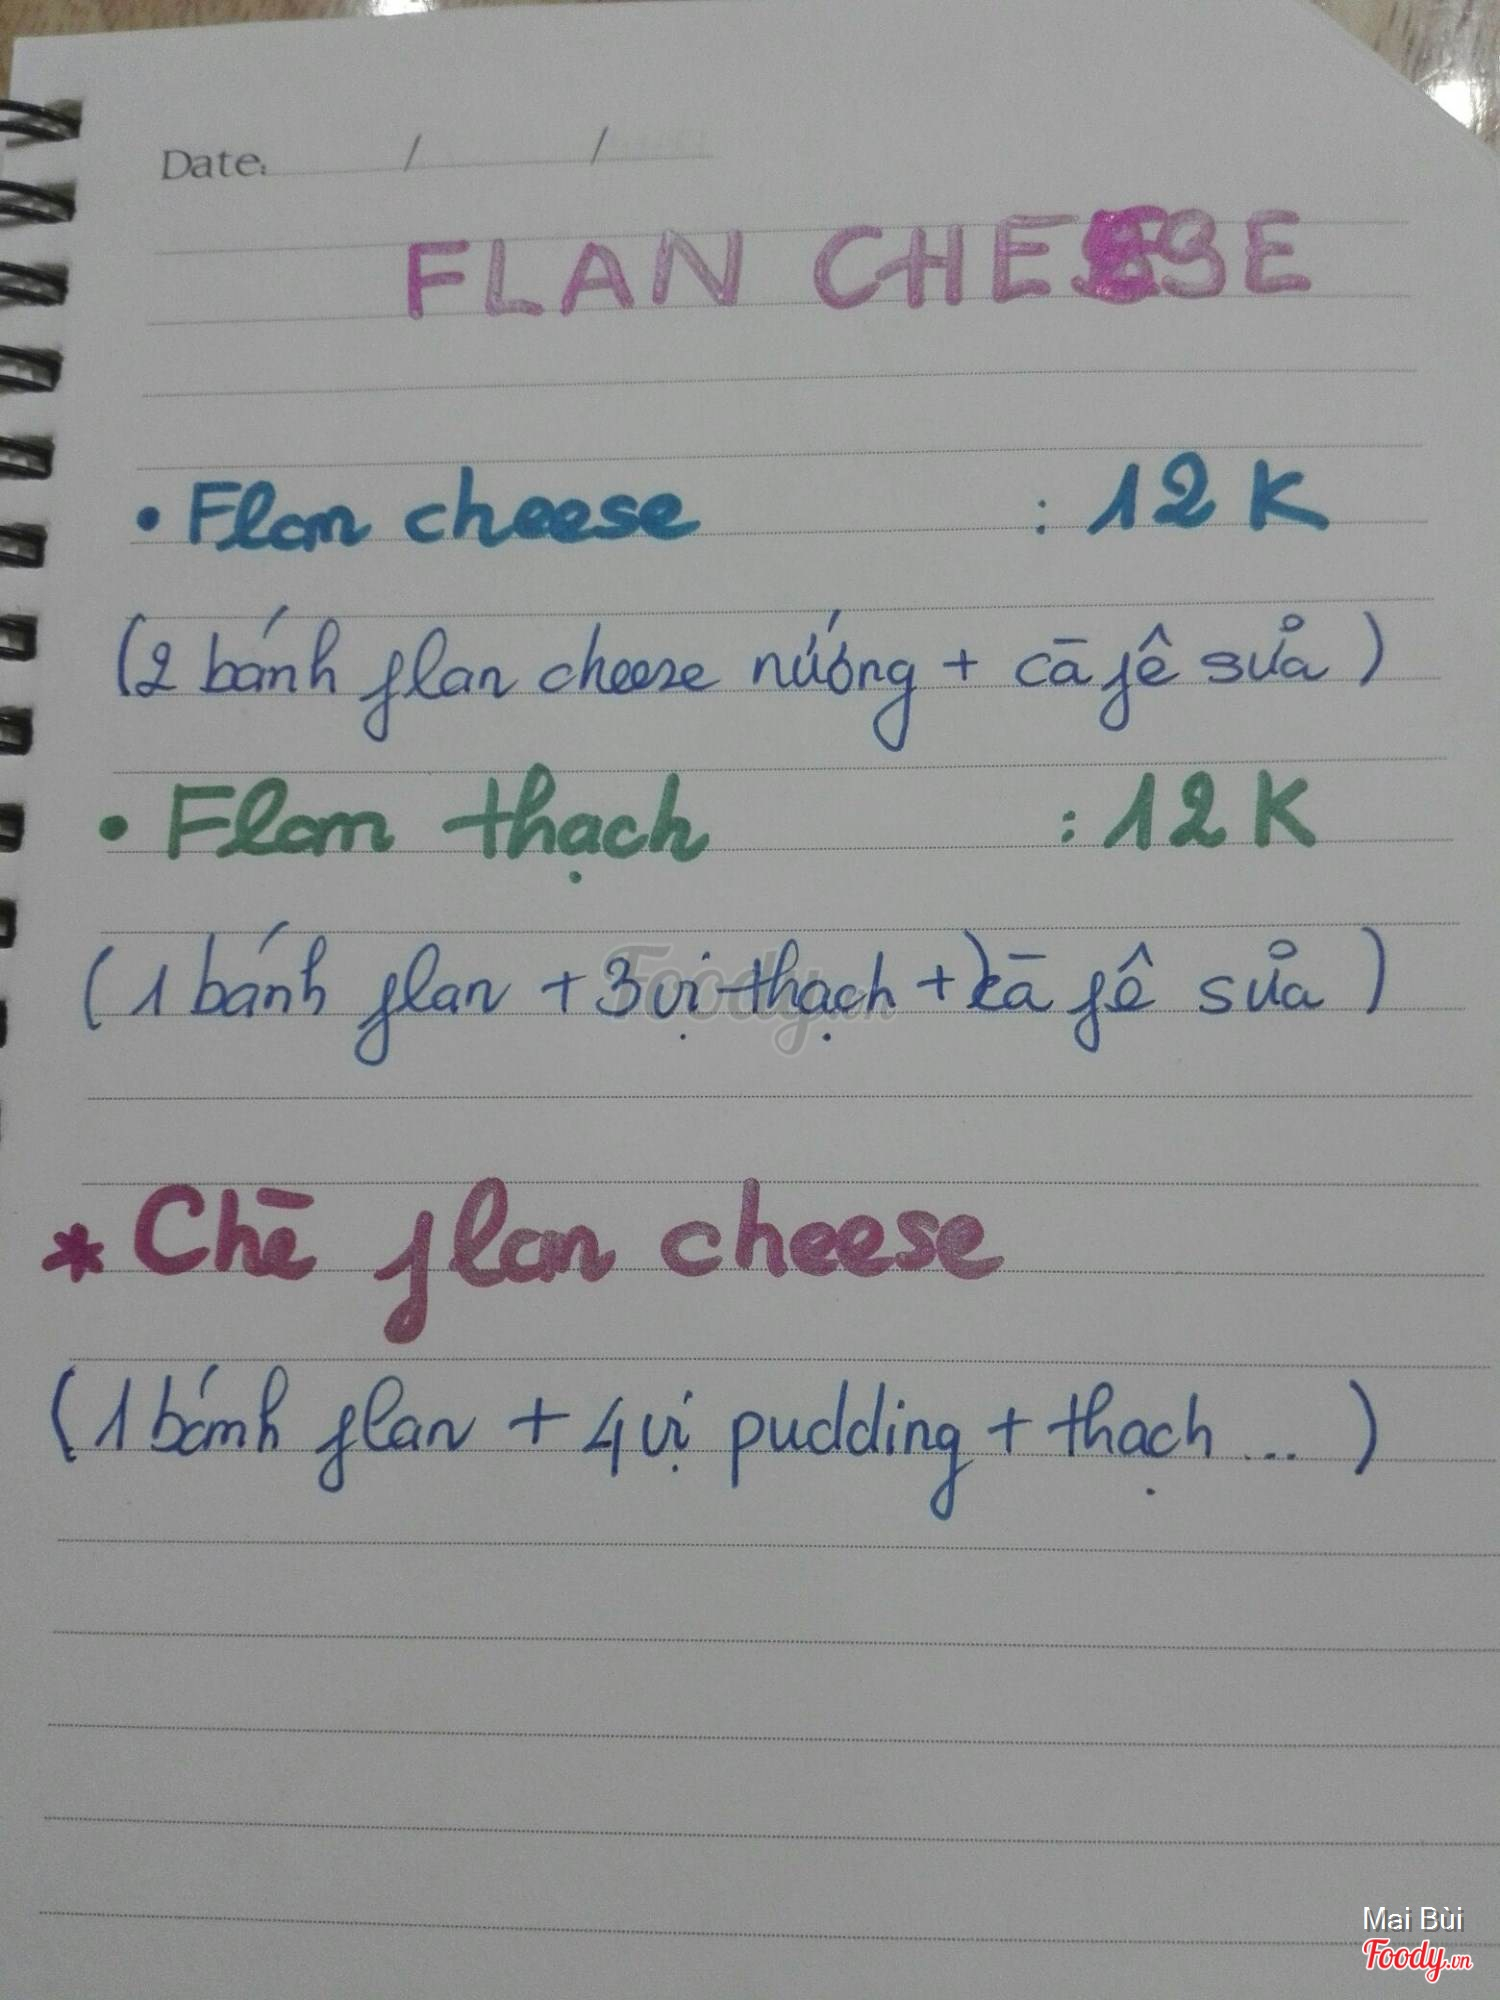 Date: / /
FLAN CHEESE
• Flan cheese : 12K
(2 bánh flan cheese nướng + cà fê sữa)
• Flan thạch : 12K
(1 bánh flan + 3 vị thạch + cà fê sữa)
* Chè flan cheese
(1 bánh flan + 4 vị pudding + thạch ...)
Foody.vn
Mai Bùi
Foody.vn